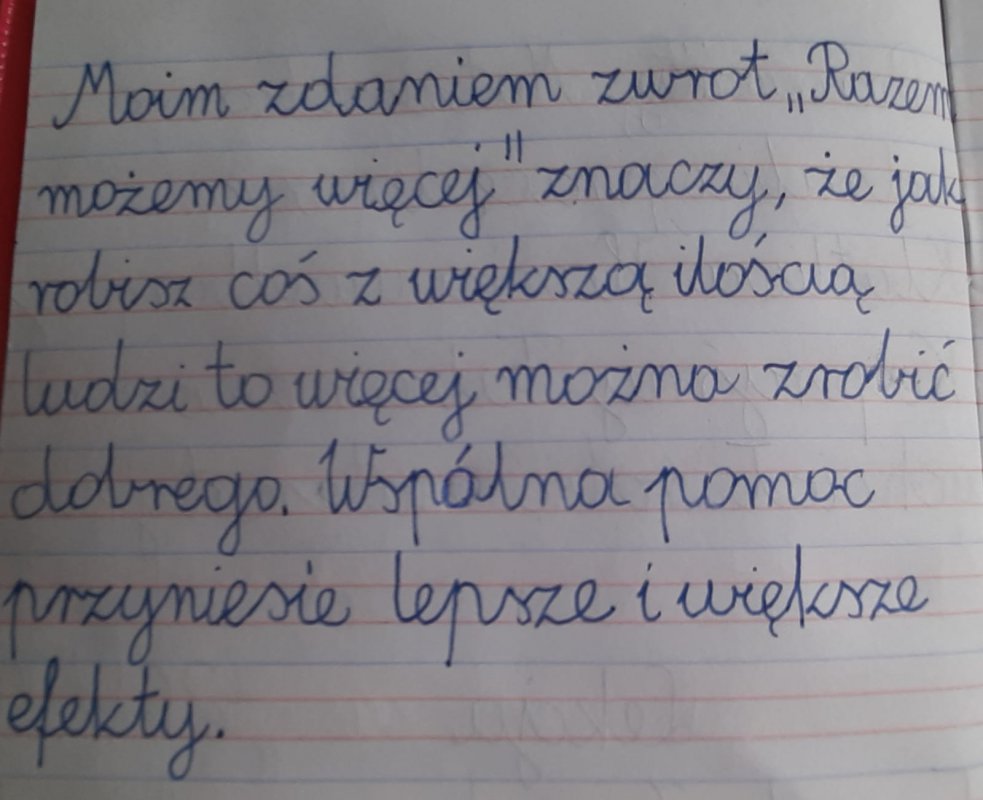 Moim zdaniem zwrot „Razem
możemy więcej" znaczy, że jak
robisz coś z większą ilością
ludzi to więcej można zrobić
dobrego. Wspólna pomoc
przyniesie lepsze i większe
efekty.